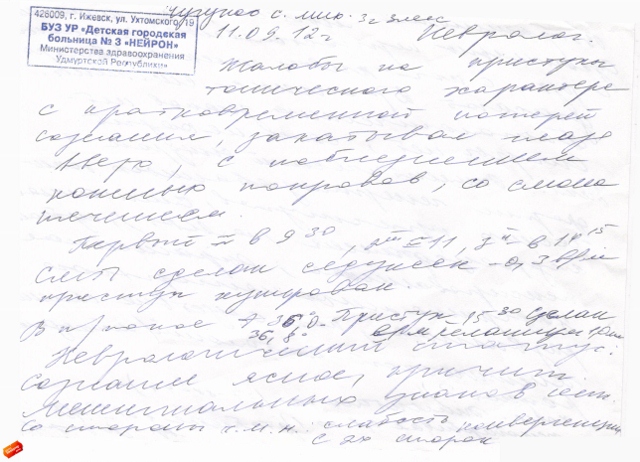 426009, г. Ижевск, ул. Ухтомского, 19
БУЗ УР «Детская городская
больница № 3 «НЕЙРОН»
Министерства здравоохранения
Удмуртской Республики»
11.09.12г Невролог.
Жалобы на приступы
тонического характера
с кратковременной потерей
сознания, закатывал глаза
вверх, с побледнением
кожных покровов, со
течением.
Первый ≈ в 9 30, 2 ≈ 11, в 15
сделан седуксен
приступ купирован.
Приступ 15 30 сделан
36,8°
Неврологический статус:
сознание ясное, кричит.
менингиальных знаков нет.
Со стороны ч.м.н.: слабость конвергенции
с 2х сторон